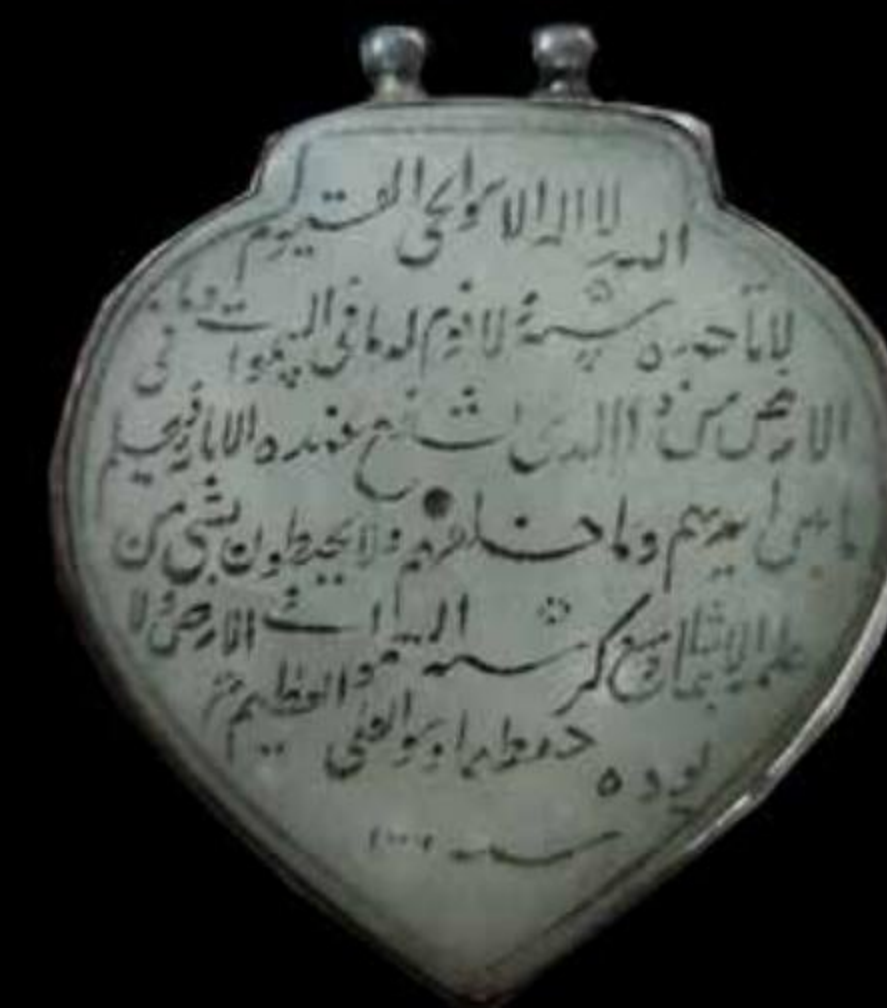 الله لا اله الا هو الحی القیوم
لا تاخذه سنة و لا نوم له ما فی السموات وما فی
الارض من ذا الذی یشفع عنده الا باذنه یعلم
ما بین ایدیهم وما خلفهم ولا یحیطون بشی من
علمه الا بما شاء وسع کرسیه السموات الارض ولا
یوده حفظهما وهو العلی العظیم
سنه